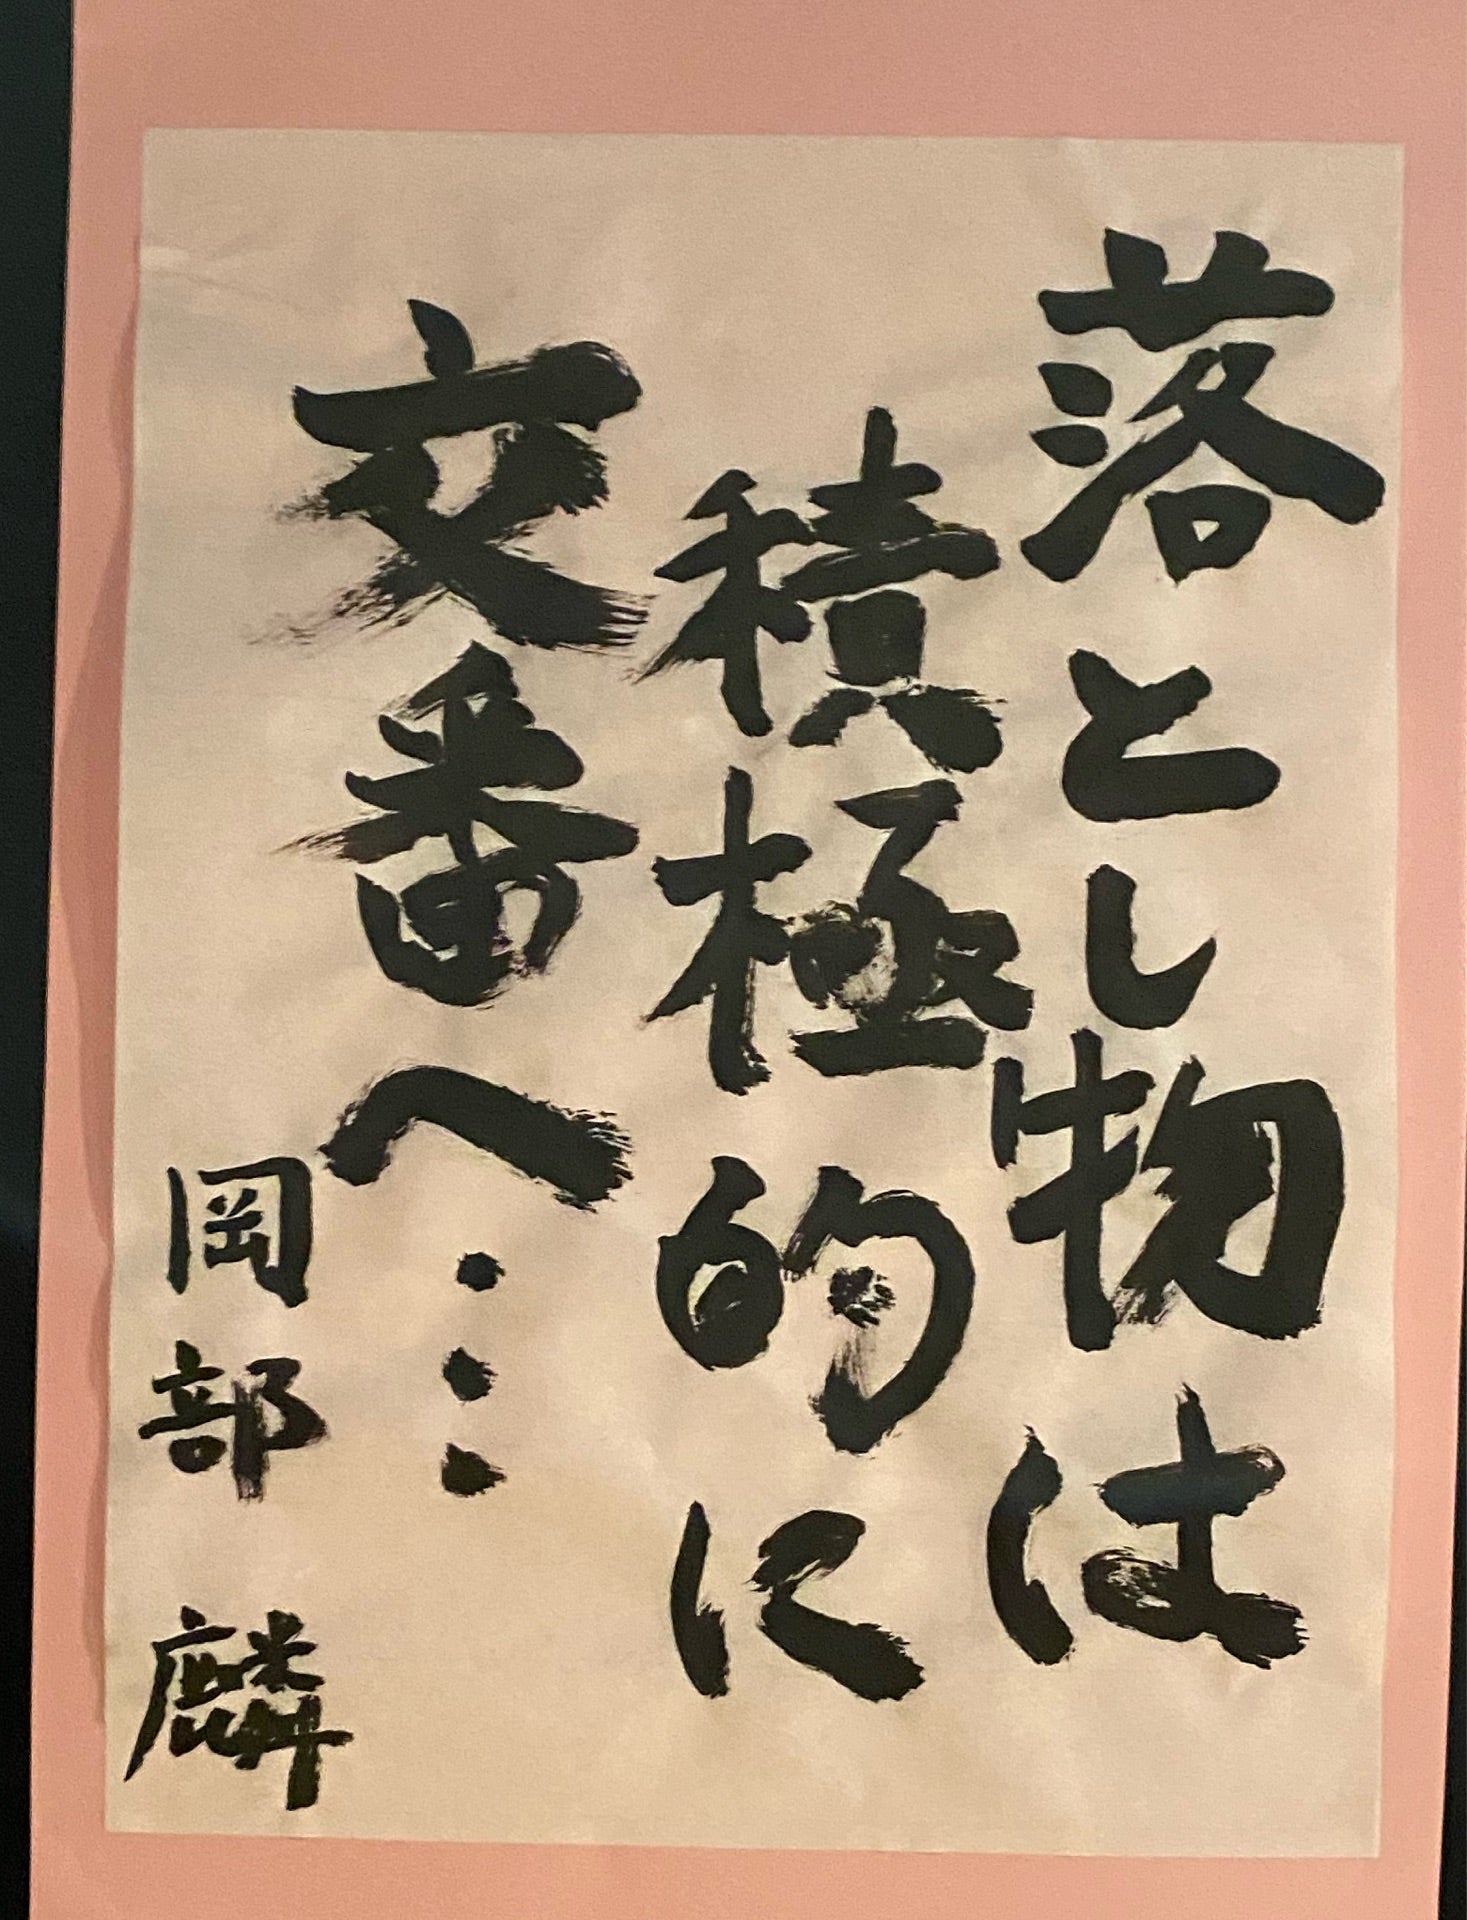 落とし物は
積極的に
交番へ…
岡部 麟